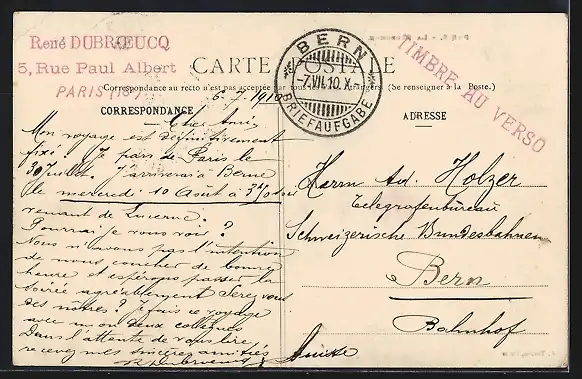 René DUBRŒUCQ
5, Rue Paul Albert
PARIS (18e)
CARTE POSTALE
Correspondance au recto n'est pas acceptée par tous les pays étrangers. (Se renseigner à la Poste.)
BERN
-7.VII.10.X-
BRIEFAUFGABE
TIMBRE AU VERSO
CORRESPONDANCE
6-7-1910
Cher Ami
Mon voyage est définitivement
fixé. Je pars de Paris le
30 Juillet. J'arriverai à Berne
le mercredi 10 Août à
venant de Lucerne.
Pourrai je vous voir ?
Nous n'avons pas l'intention
de nous coucher de bonne
heure et espérons passer la
soirée agréablement. Serez vous
des nôtres ? Je fais ce voyage
avec mon deux collègues
Dans l'attente de vous lire
recevez mes sincères amitiés
R. Dubroeucq
ADRESSE
Herrn Ad. Holzer
Telegrafenbureau
Schweizerische Bundesbahnen
Bern
Bahnhof
Suisse